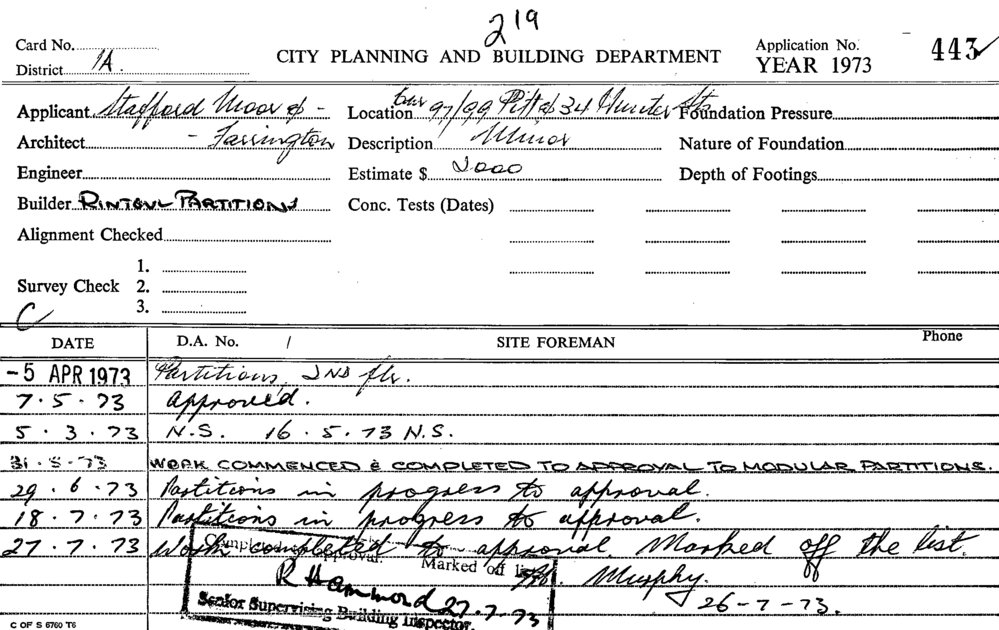 219
Card No.
CITY PLANNING AND BUILDING DEPARTMENT
Application No. 443
YEAR 1973
District 1A.
Applicant Stafford Moor & -
Location Cnr 97/99 Pitt & 34 Hunter Sts
Foundation Pressure
Architect - Farrington
Description Minor
Nature of Foundation
Engineer
Estimate $ 2000
Depth of Footings
Builder RINTOUL PARTITIONS
Conc. Tests (Dates)
Alignment Checked
Survey Check
1.
2.
3.
C
DATE
D.A. No. /
SITE FOREMAN
Phone
-5 APR 1973 Partitions, 2ND flr.
7.5.73 Approved.
5.3.73 N.S. 16.5.73 N.S.
31.5.73 WORK COMMENCED & COMPLETED TO APPROVAL TO MODULAR PARTITIONS.
29.6.73 Partitions in progress to approval.
18.7.73 Partitions in progress to approval.
27.7.73 Work completed to approval. Marked off the list.
Approval. Marked off list
Murphy.
R Hammond 27.7.73
26-7-73.
Senior Supervising Building Inspector.
C OF S 6760 T6